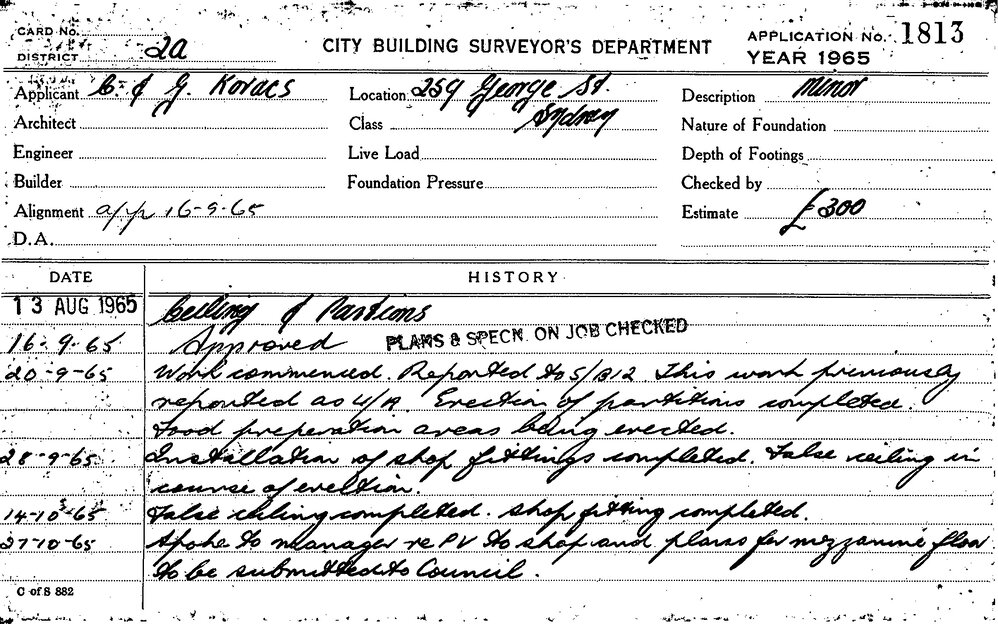 CARD No.
DISTRICT 2a
CITY BUILDING SURVEYOR'S DEPARTMENT
APPLICATION No. 1813
YEAR 1965
Applicant C. & G. Kovacs
Location 259 George St.
Sydney
Description Minor
Architect
Class
Nature of Foundation
Engineer
Live Load
Depth of Footings
Builder
Foundation Pressure
Checked by
Alignment app 16-9-65
Estimate £300
D.A.
DATE
HISTORY
13 AUG 1965 Ceiling &
16-9-65 Approved PLANS & SPECN. ON JOB CHECKED
20-9-65 Work commenced. Reported to S/B12. This work previously
reported as U/A. Erection of partitions completed.
Food preperation areas being erected.
28-9-65 Installation of shop fittings completed. False ceiling in
course of erection.
14-10-65 False ceiling completed. Shop fitting completed.
27-10-65 Spoke to manager re PV to shop and plans for mezzanine floor
to be submitted to Council.
C of S 882